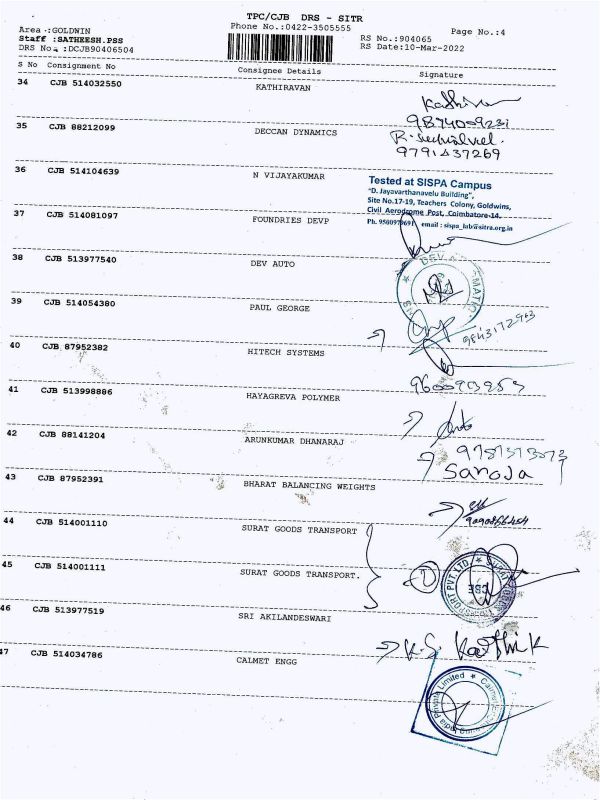 TPC/CJB DRS - SITR
Area :GOLDWIN
Phone No.:0422-3505555
Page No.:4
Staff :SATHEESH.PSS
RS No.:904065
DRS No. :DCJB90406504
RS Date:10-Mar-2022
S No Consignment No Consignee Details Signature
34 CJB 514032550 KATHIRAVAN
9894009231
35 CJB 88212099 DECCAN DYNAMICS
9791437269
36 CJB 514104639 N VIJAYAKUMAR
Tested at SISPA Campus
"D. Jayavarthanavelu Building",
Site No.17-19, Teachers Colony, Goldwins,
Civil Aerodrome Post, Coimbatore-14.
Ph. 9500978691 email : sispa_lab@sitra.org.in
37 CJB 514081097 FOUNDRIES DEVP
38 CJB 513977540 DEV AUTO
DEV
39 CJB 514054380 PAUL GEORGE
9843172963
40 CJB 87952382 HITECH SYSTEMS
41 CJB 513998886 HAYAGREVA POLYMER
42 CJB 88141204 ARUNKUMAR DHANARAJ
Saroja
43 CJB 87952391 BHARAT BALANCING WEIGHTS
44 CJB 514001110 SURAT GOODS TRANSPORT
45 CJB 514001111 SURAT GOODS TRANSPORT.
46 CJB 513977519 SRI AKILANDESWARI
K.S. Karthik
47 CJB 514034786 CALMET ENGG